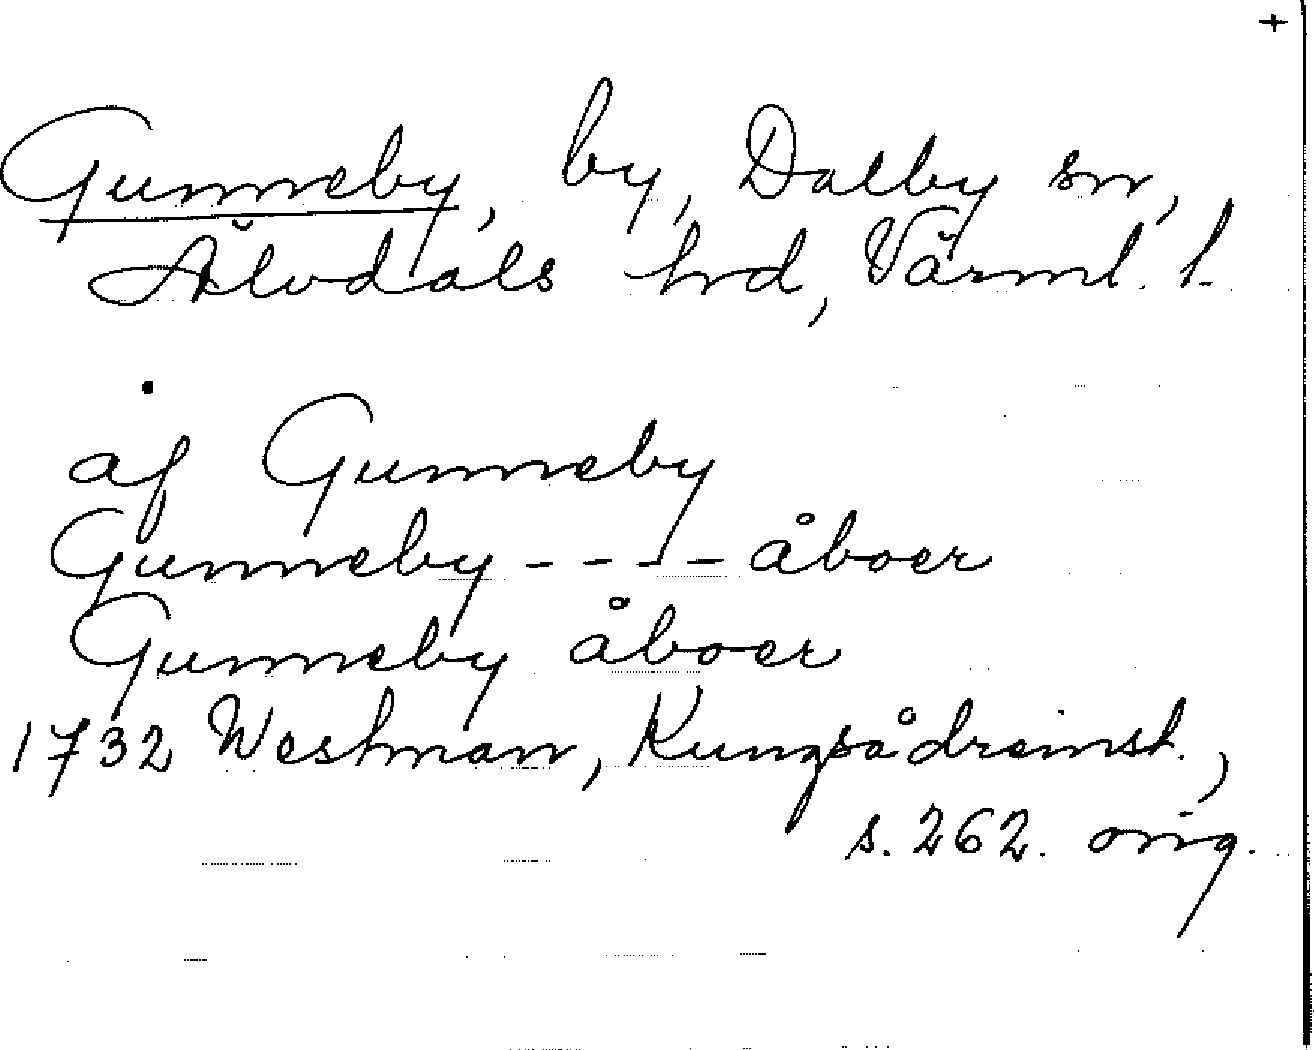 +
Gunneby, by, Dalby sn,
Älvdals hrd, Värml. l.
af Gunneby
Gunneby - - - - åboer
Gunneby åboer
1732 Westman, Kungsådreinst.,
s. 262. orig.